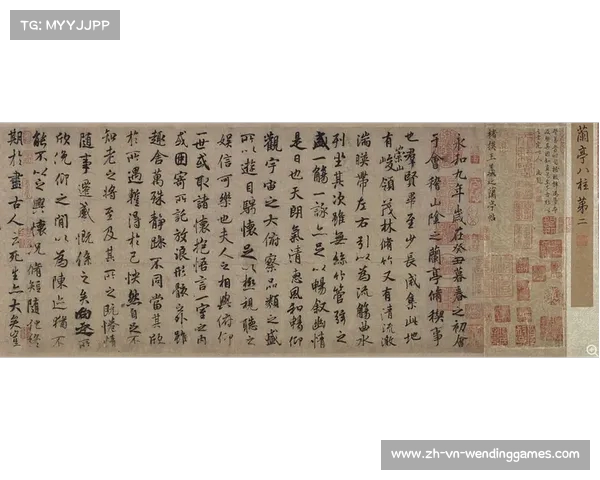 TG: MYYJJPP
蘭亭八柱第二
褚摸王羲之蘭亭帖
永和九年歲在癸丑暮春之初會
于會稽山陰之蘭亭脩禊事
也群賢畢至少長咸集此地
有崇山峻領茂林脩竹又有清流激
湍暎帶左右引以為流觴曲水
列坐其次雖無絲竹管弦之
盛一觴一詠亦足以暢敘幽情
是日也天朗氣清惠風和暢仰
觀宇宙之大俯察品類之盛
所以遊目騁懷足以極視聽之
娛信可樂也夫人之相與俯仰
一世或取諸懷抱悟言一室之內
或因寄所託放浪形骸之外雖
趣舍萬殊靜躁不同當其欣
於所遇暫得於己快然自足不
知老之將至及其所之既惓情
隨事遷感慨係之矣向之所
欣俛仰之間以為陳迹猶不
能不以之興懷況脩短隨化終
期於盡古人云死生亦大矣豈
www.zh-vn-wendinggames.com